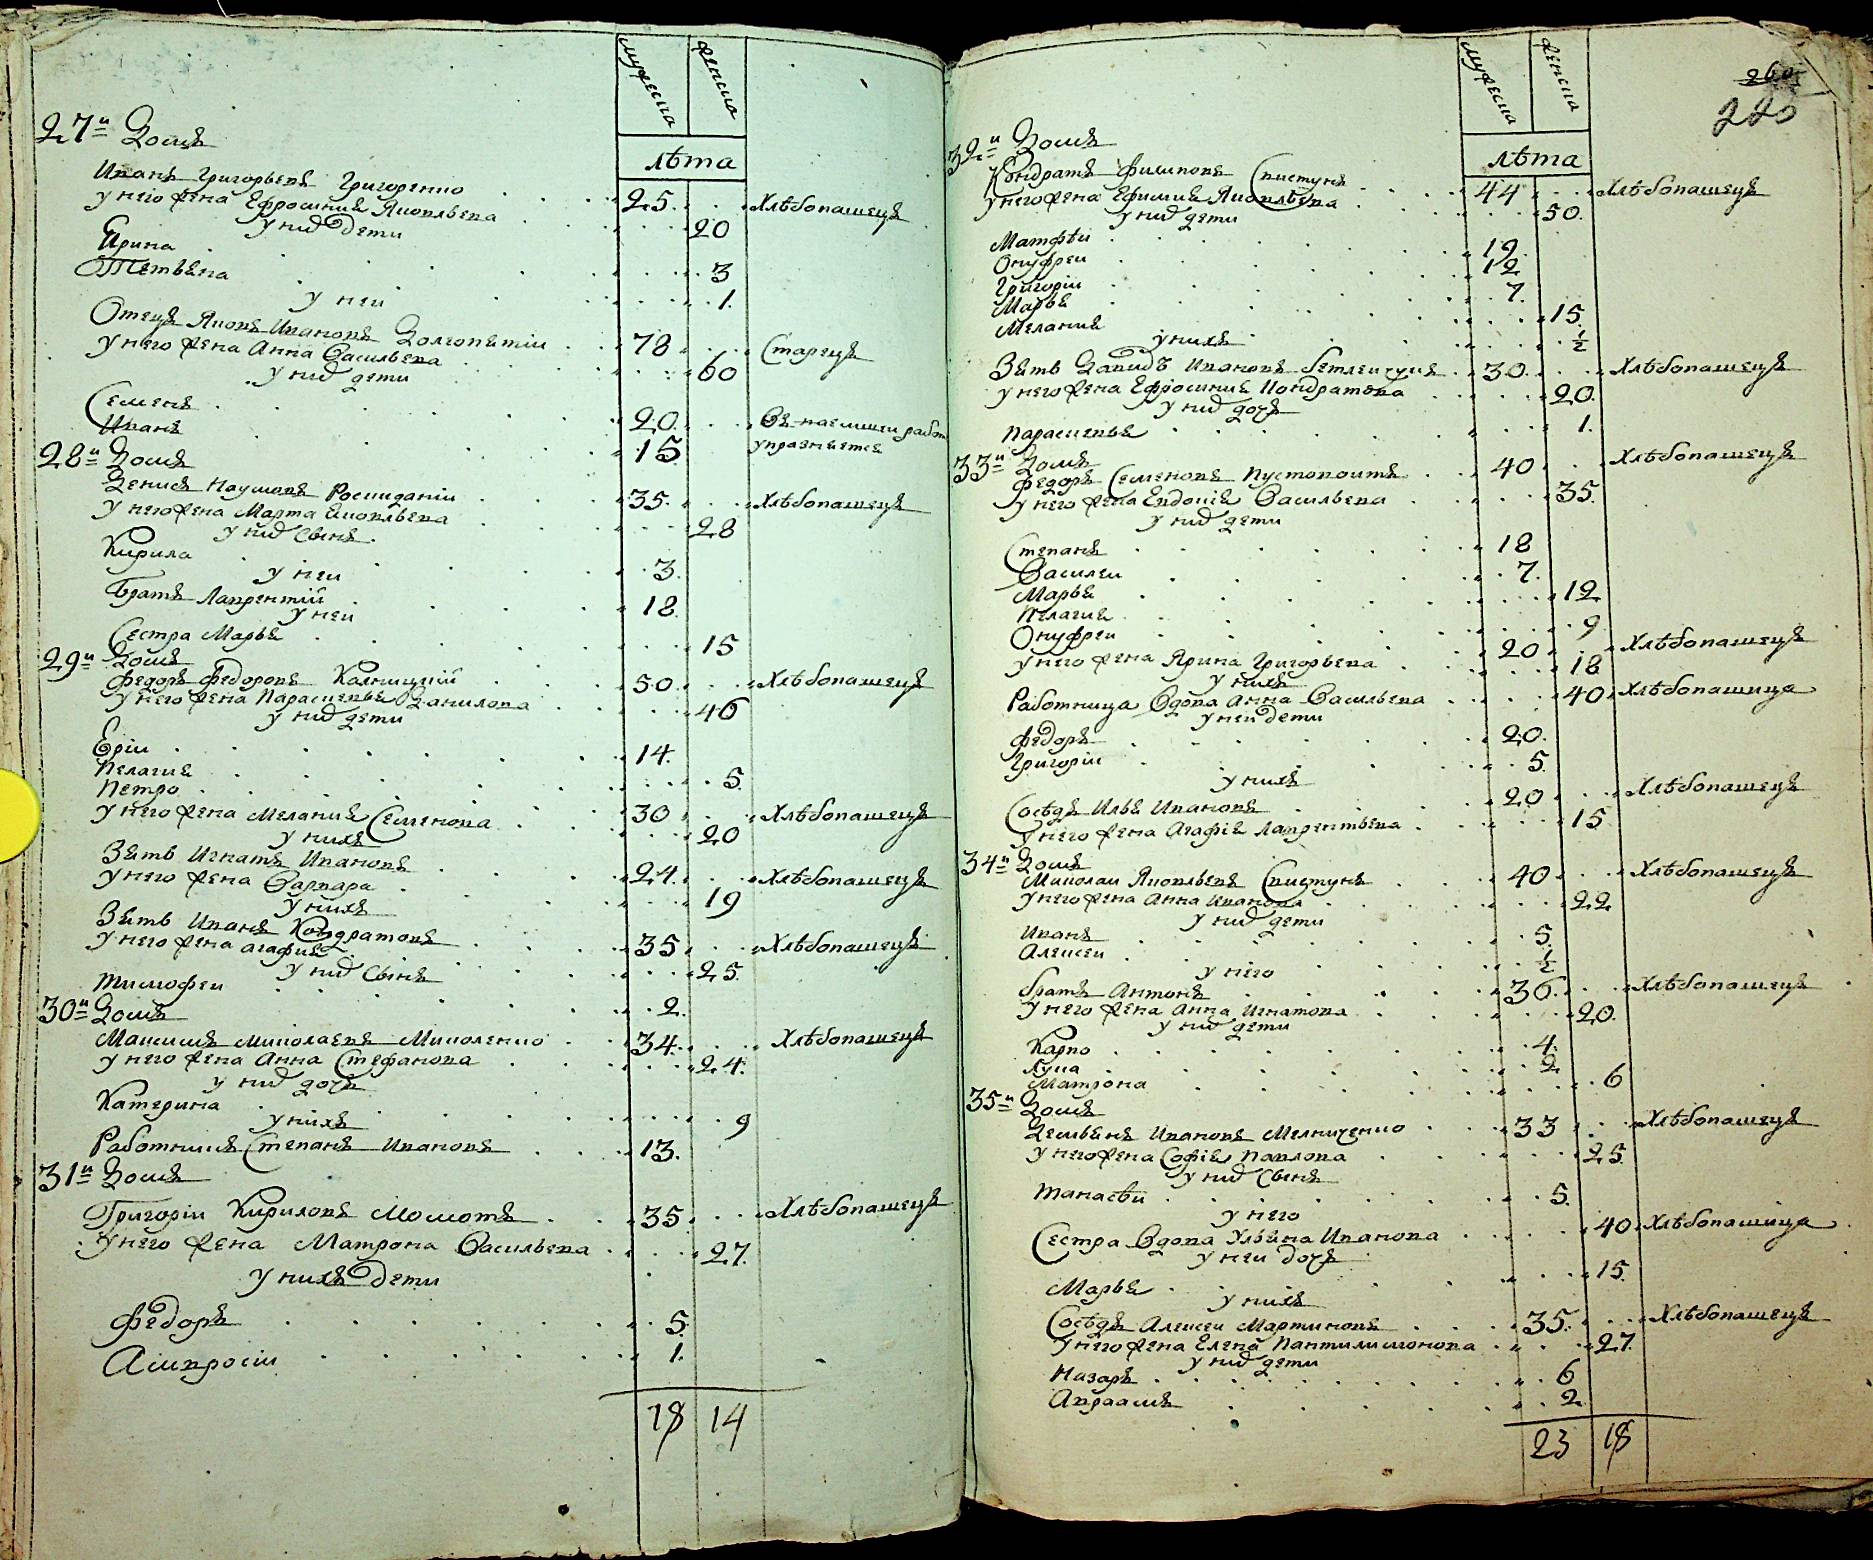 мужеска женска
лѣта
27й Домъ
Иванъ Григорьевъ Григоренко 25 Хлѣбопашецъ
у него жена Ефросиния Яковлева 20
у них дети
Ирина 3
Тетьяна 1
у неи
Отецъ Яковъ Ивановъ Долгопятіи 78 Старецъ
у него жена Анна Васильева 60
у них дети
Семенъ 20 Въ наемшеи работ
Иванъ 15 упражняется
28й Домъ
Денисъ Наумовъ 35 Хлѣбопашецъ
у него жена Марта Яковльева 28
у них Сынъ
Кирила 3
у неи
Братъ Лаврентіи 18
у неи
Сестра Марья 15
29й Домъ
Федоръ Федоровъ Калницкій 50 Хлѣбопашецъ
у него жена Парасковья Данилова 46
у них дети
Еріи 14
Пелагия 5
Петро 30 Хлѣбопашецъ
у него жена Мелания Семенова 20
у нихъ
Зять Игнатъ Ивановъ 24 Хлѣбопашецъ
у него жена Варвара 19
у нихъ
Зять Иванъ Кондратовъ 35 Хлѣбопашецъ
у него жена агафия 25
у них Сынъ
Тимофеи 2
30й Домъ
Максимъ Миколаевъ Миколенко 34 Хлѣбопашецъ
у него жена Анна Стефанова 24
у них дочь
Катерина 9
у нихъ
Работникъ Степанъ Ивановъ 13
31й Домъ
Григоріи Кириловъ Момотъ 35 Хлѣбопашецъ
у него жена Матрона Васильева 27
у нихъ дети
Федоръ 5
Амвросіи 1
18 14
260
220
мужеска женска
лѣта
32й Домъ
Кондратъ Филиповъ Свистунъ 44 Хлѣбопашецъ
у него жена Ефимия Яковльева 50
у них дети
Матфѣи 19
Онуфреи 12
Григоріи 7
Марья 15
Мелания ½
у нихъ
Зять Давидъ Ивановъ 30 Хлѣбопашецъ
у него жена Ефросиния Кондратова 20
у них дочь
Парасковья 1
33й Домъ
Федоръ Семеновъ Пустовоитъ 40 Хлѣбопашецъ
у него жена Евдокия Васильева 35
у них дети
Степанъ 18
Василеи 7
Марья 12
Пелагия 9
Онуфреи 20 Хлѣбопашецъ
у него жена Ярина Григорьева 18
у нихъ
Работница Вдова Анна Васильева 40 Хлѣбопашица
у неи дети
Федоръ 20
Григоріи 5
у нихъ
Сосѣдъ Илья Ивановъ 20 Хлѣбопашецъ
у него жена Агафия Лаврентьева 15
34й Домъ
Миколаи Яковльевъ Свистунъ 40 Хлѣбопашецъ
у него жена Анна Иванова 22
у них дети
Иванъ 5
Алексеи ½
у него
братъ Антонъ 36 Хлѣбопашецъ
у него жена Анна Игнатова 20
у них дети
Карпо 4
Лука 2
Матрона 6
35й Домъ
Демьянъ Ивановъ Мелниченко 33 Хлѣбопашецъ
у него жена Софія Павлова 25
у них Сынъ
Танасѣи 5
у него
Сестра Вдова Ульяна Иванова 40 Хлѣбопашица
у неи дочь
Марья 15
у нихъ
Сосѣдъ Алексеи Мартиновъ 35 Хлѣбопашецъ
у него жена Елена Пантилимонова 27
у них дети
Назаръ 6
Авраамъ 2
23 18